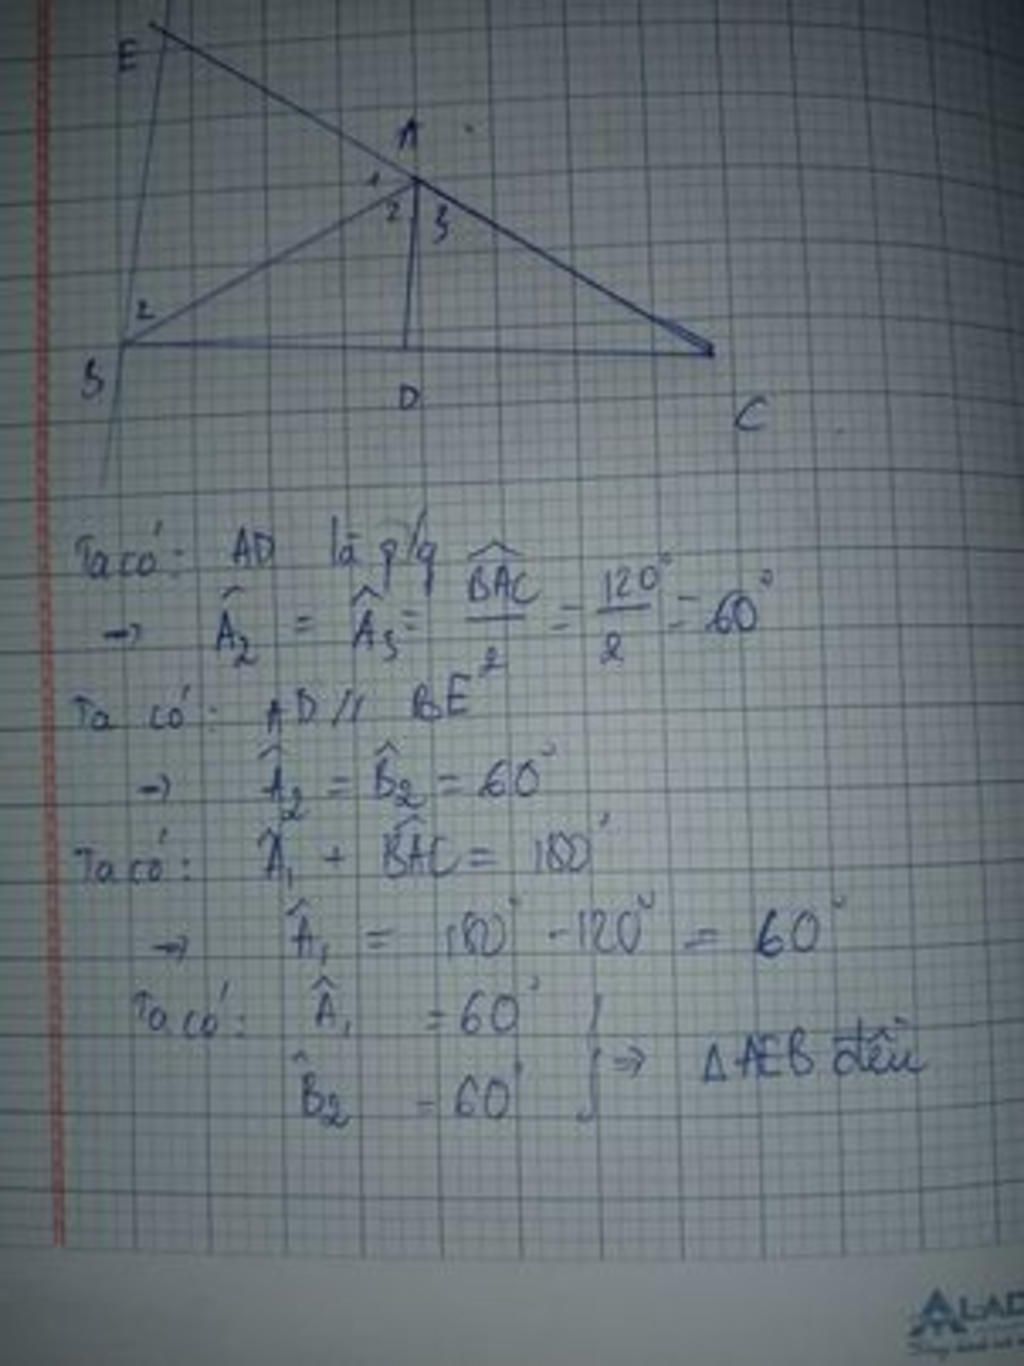 E
A
1
2 3
2
B
D
C
Ta có: AD là p/g
→ Â₂ = Â₃ = \frac{\widehat{BAC}}{2} = \frac{120°}{2} = 60°
Ta có: AD // BE
→ Â₂ = B̂₂ = 60°
Ta có: Â₁ + \widehat{BAC} = 180°
→ Â₁ = 180° - 120° = 60°
Ta có: Â₁ = 60°
B̂₂ = 60° } ⇒ Δ AEB đều